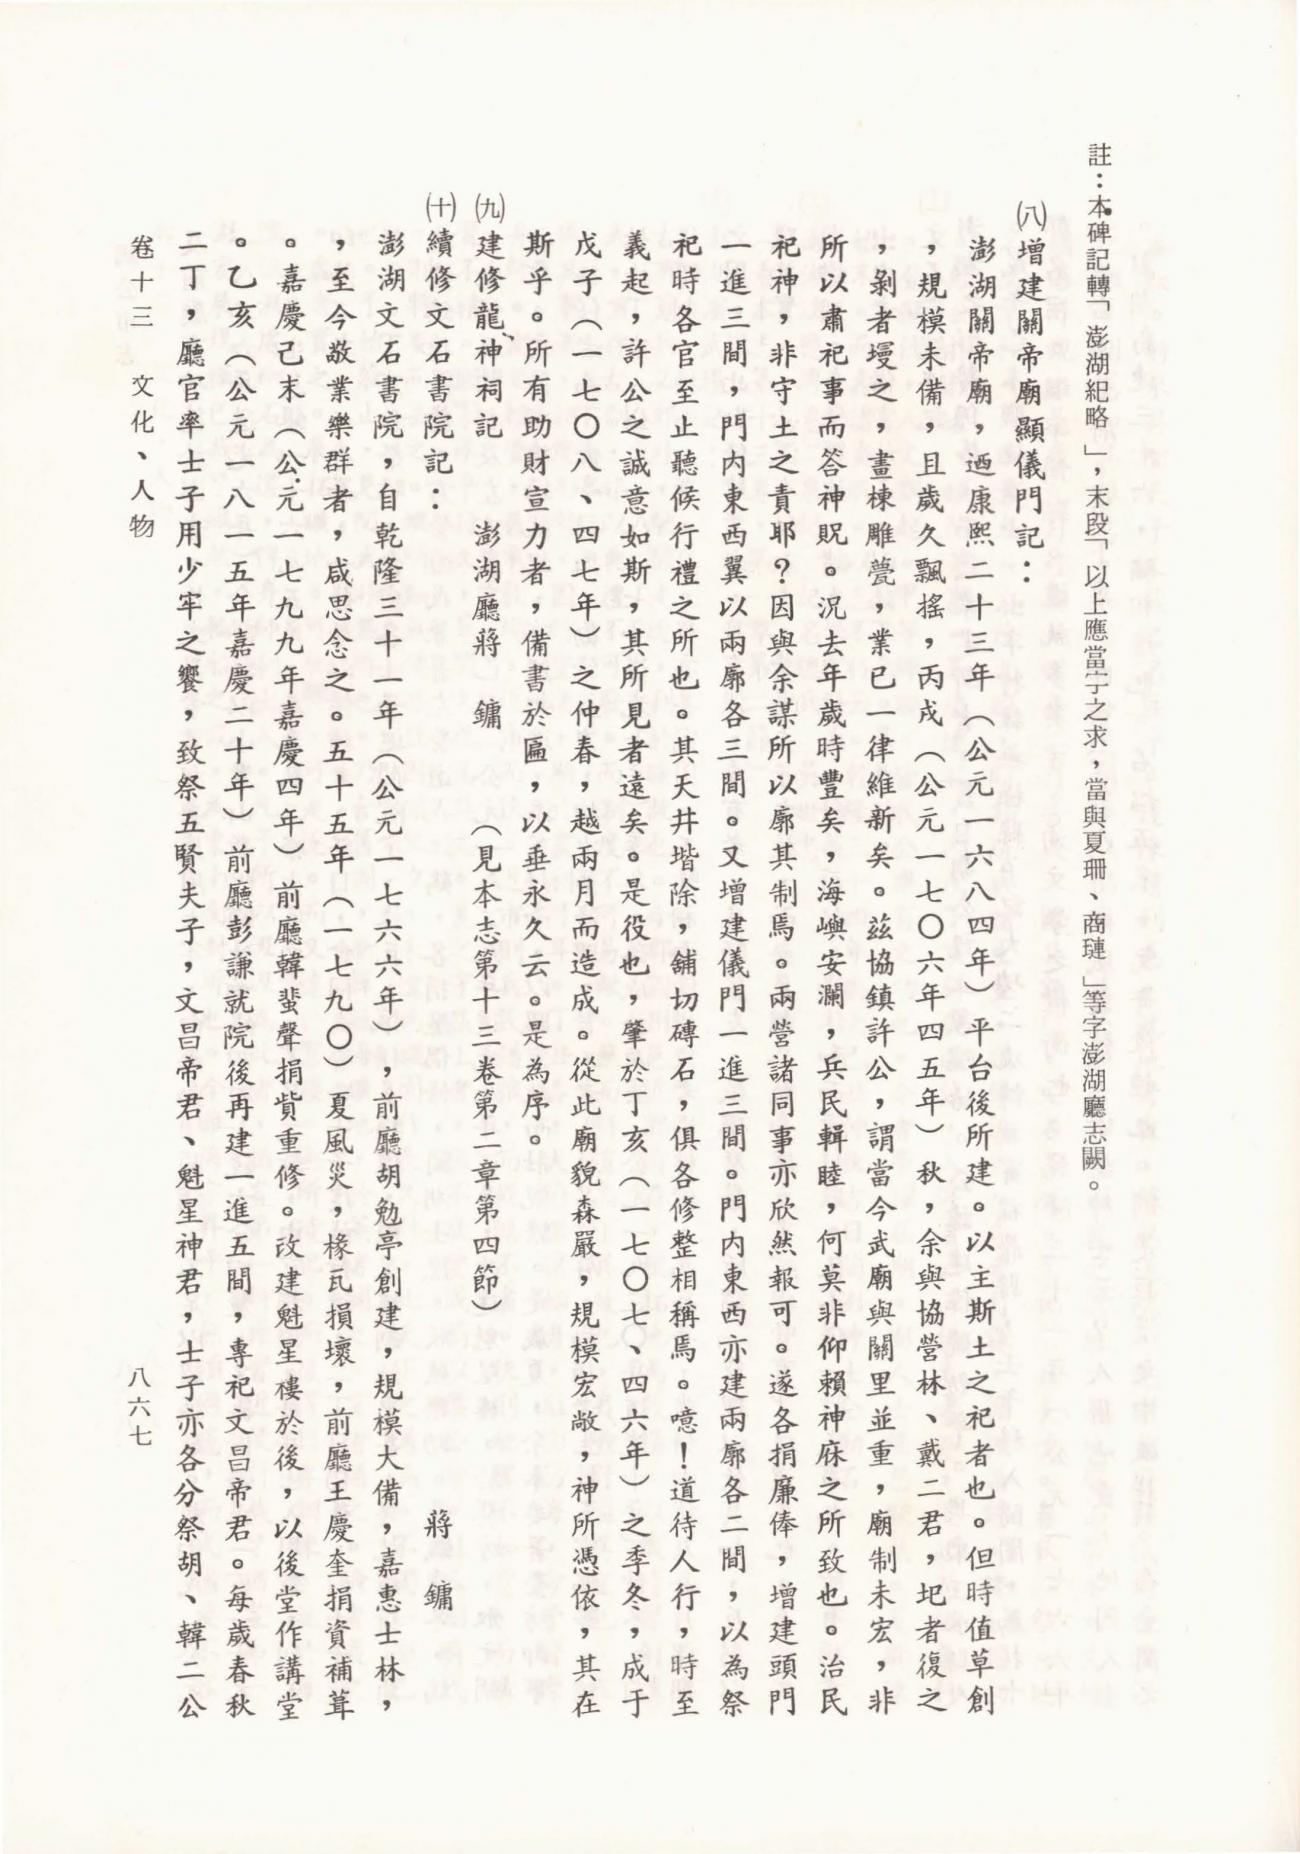 註：本碑記轉「澎湖紀略」，末段「以上應當宁之求，當與夏瑚、商璉」等字澎湖廳志闕。
㈧增建關帝廟顯儀門記：
澎湖關帝廟，迺康熙二十三年（公元一六八四年）平台後所建。以主斯土之祀者也。但時值草創
，規模未備，且歲久飄搖，丙戌（公元一七〇六年四五年）秋，余與協營林、戴二君，圯者復之
，剝者墁之，畫棟雕甍，業已一律維新矣。茲協鎮許公，謂當今武廟與關里並重，廟制未宏，非
所以肅祀事而答神貺。況去年歲時豐矣，海嶼安瀾，兵民輯睦，何莫非仰賴神庥之所致也。治民
祀神，非守土之責耶？因與余謀所以廓其制焉。兩營諸同事亦欣然報可。遂各捐廉俸，增建頭門
一進三間，門内東西翼以兩廓各三間。又增建儀門一進三間。門内東西亦建兩廓各二間，以為祭
祀時各官至止聽候行禮之所也。其天井堦除，舖切磚石，俱各修整相稱焉。噫！道待人行，時至
義起，許公之誠意如斯，其所見者遠矣。是役也，肇於丁亥（一七〇七、四六年）之季冬，成于
戊子（一七〇八、四七年）之仲春，越兩月而造成。從此廟貌森嚴，規模宏敞，神所憑依，其在
斯乎。所有助財宣力者，備書於匾，以垂永久云。是為序。
㈨建修龍神祠記　澎湖廳蔣　鏞　（見本志第十三卷第二章第四節）
㈩續修文石書院記：　蔣　鏞
澎湖文石書院，自乾隆三十一年（公元一七六六年），前廳胡勉亭創建，規模大備，嘉惠士林，
，至今敬業樂群者，咸思念之。五十五年（一七九〇）夏風災，椽瓦損壞，前廳王慶奎捐資補葺
。嘉慶己末（公元一七九九年嘉慶四年）前廳韓蜚聲捐貲重修。改建魁星樓於後，以後堂作講堂
。乙亥（公元一八一五年嘉慶二十年）前廳彭謙就院後再建一進五間，專祀文昌帝君。每歲春秋
二丁，廳官率士子用少牢之饗，致祭五賢夫子，文昌帝君、魁星神君，士子亦各分祭胡、韓二公
卷十三　文化、人物　八六七